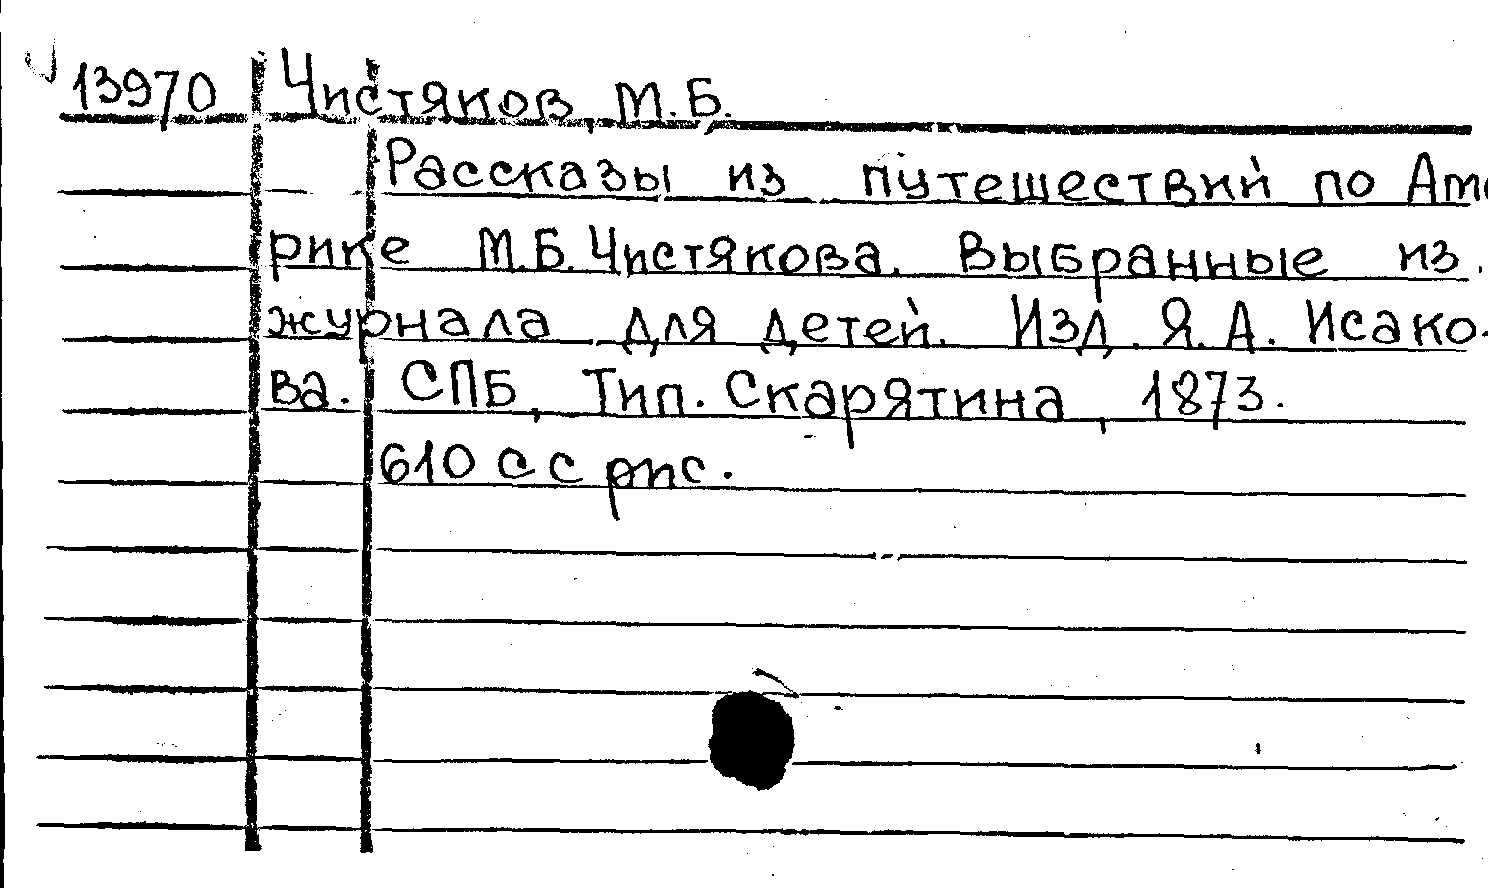 13970 Чистяков, М.Б.
Рассказы из путешествий по Аме
рике М.Б. Чистякова. Выбранные из
журнала для детей. Изд. Я.А. Исако-
ва. СПБ, Тип. Скарятина, 1873.
610 с с рис.